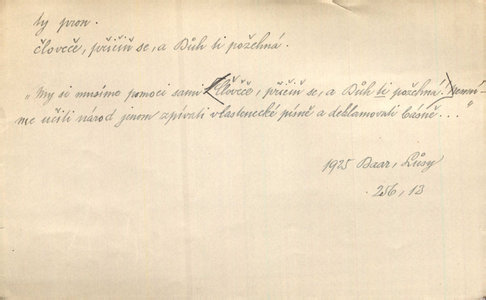 ty pron.
člověče, přičiň se, a Bůh ti požehná.
„My si musíme pomoci sami (Člověče, přičiň se, a Bůh ti požehná.) Nemusí-
me učiti národ jenom zpívati vlastenecké písně a deklamovati básně..."
1925 Baar, Lůsy
256, 13